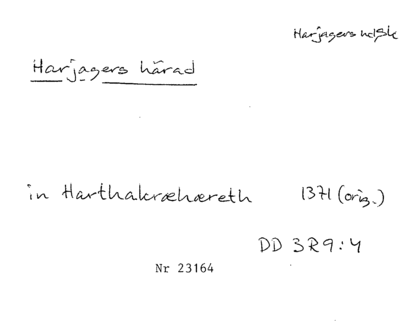 Harjagers hd Sk
Harjagers härad
in Harthakræhæreth 1371 (orig.)
DD 3R9:4
Nr 23164